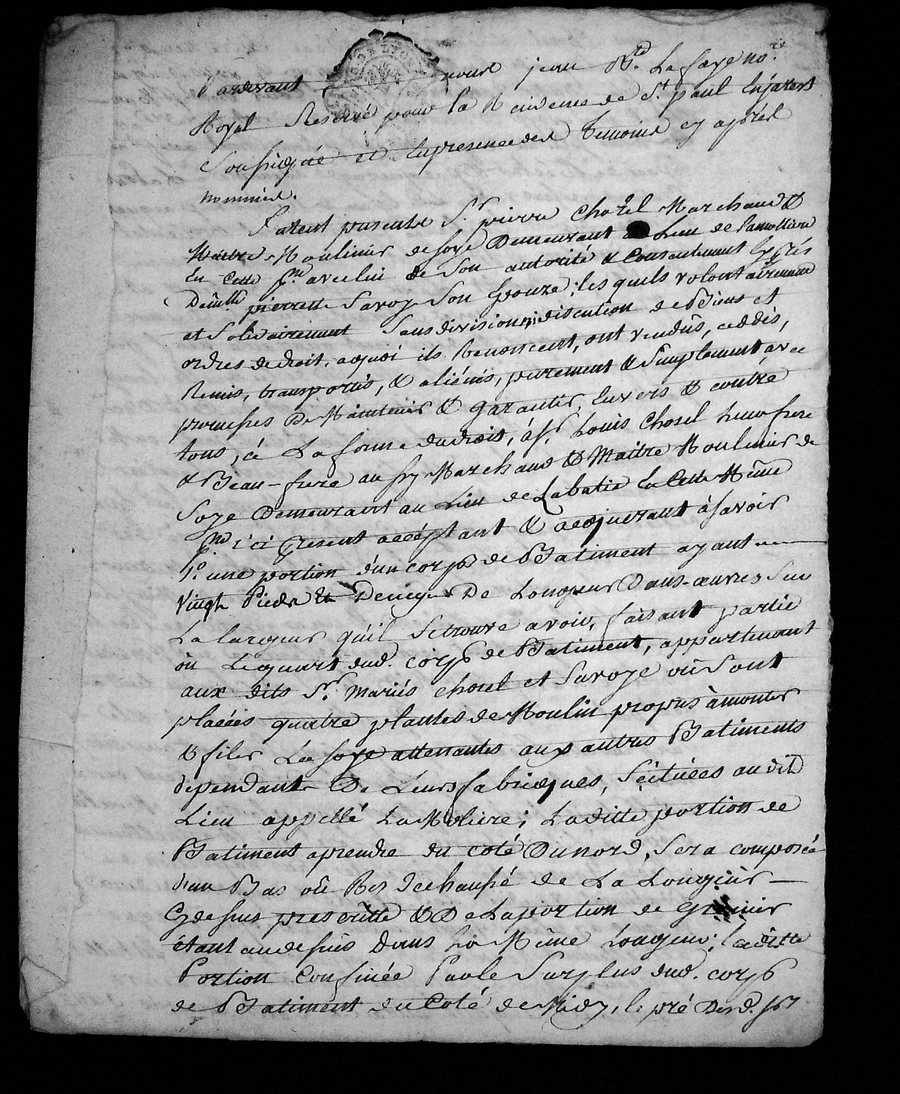 Pardevant nous jean Bte. Lafaye nore.
Royal Reservé pour la Residence de St. paul En jarest
Soussigné et En presence des Temoins cy après
nommés.
Furent presents Sr. pierre Chorel Marchand &
Maitre Moulinier de soye Demeurant au Lieu de Lamolliere
En Cette psse. avec lui de Son autorité & Consentement Exprès
Demlle. pierrette Savoye Son Epouze; les quels volontairement
et Solidairement Sans division, ni discution de Biens et
ordres de droit, aquoi ils Renoncent, ont vendus, ceddés,
Remis, transportés, & aliénés, purement & Simplement avec
promesses De Maintenir & garantir, Envers & contre
tous, à La forme du droit, à Sr. Louis Chorel leur frere
& Beau-frere aussy Marchand & Maitre Moulinier de
Soye Demeurant au Lieu de Labatie En Cette Même
psse. ici présent acceptant & acquerant à Savoir
1°. une portion d'un corps de Batiment ayant
vingt Pieds Et Demy De Longueur Dans-œuvres Sur
La largeur qu'il Se trouve avoir, faisant partie
où Le quart dud. corps de Batiment, appartenant
aux dits Srs. mariés chorel et Savoye où Sont
placées quatre plantes de Moulin propres à monter
& filer La soye attenantes aux autres Batiments
dépendants De Leurs fabriques, Scituées au dit
Lieu appellé La Moliere; Laditte portion de
Batiment aprendre du coté Du nord, Sera composée
d'un Bas où Rés de chaussé de La Longueur
Cy dessus prescritte & De La portion de Grenier
étant au dessus Dans la Même Longueur; laditte
Portion Confinée Par le Surplus dud. corps
de Batiment du Coté de Midy, le pré Desd.